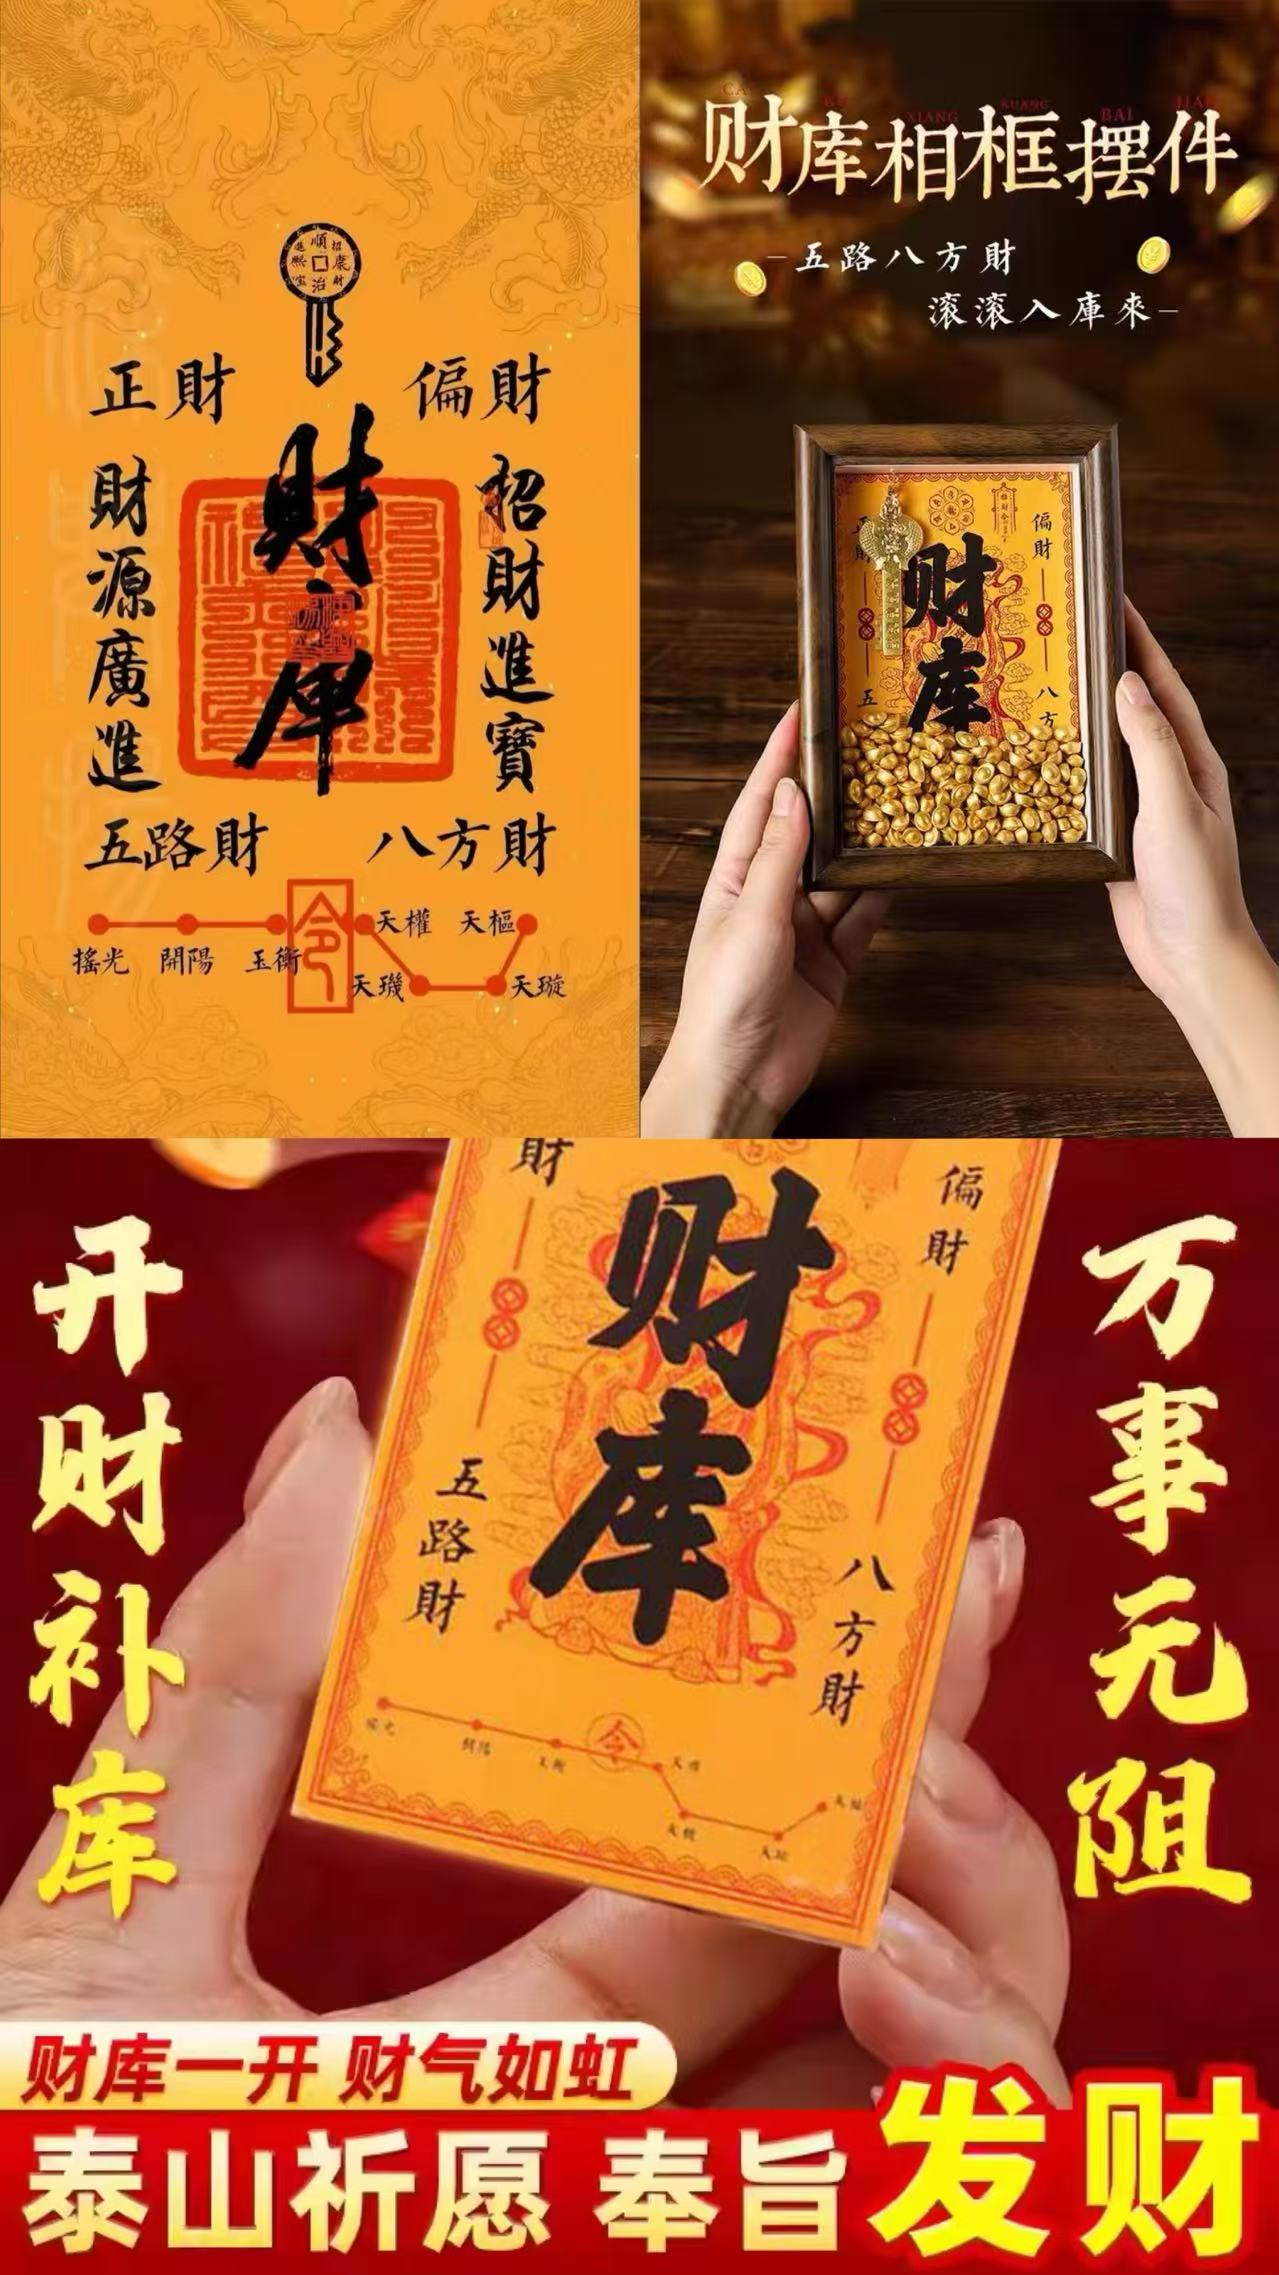 順
治
招
康
財
進
熙
宝
正財
偏財
財庫
財源廣進
招財進寶
五路財
八方財
令
搖光
開陽
玉衡
天權
天樞
天璣
天璇
财库相框摆件
XIANG
KUANG
BAI
五路八方財
滾滾入庫來
偏財
财库
五
八方
开财补库
万事无阻
財
偏財
财库
五路財
八方財
令
财库一开 财气如虹
泰山祈愿 奉旨发财